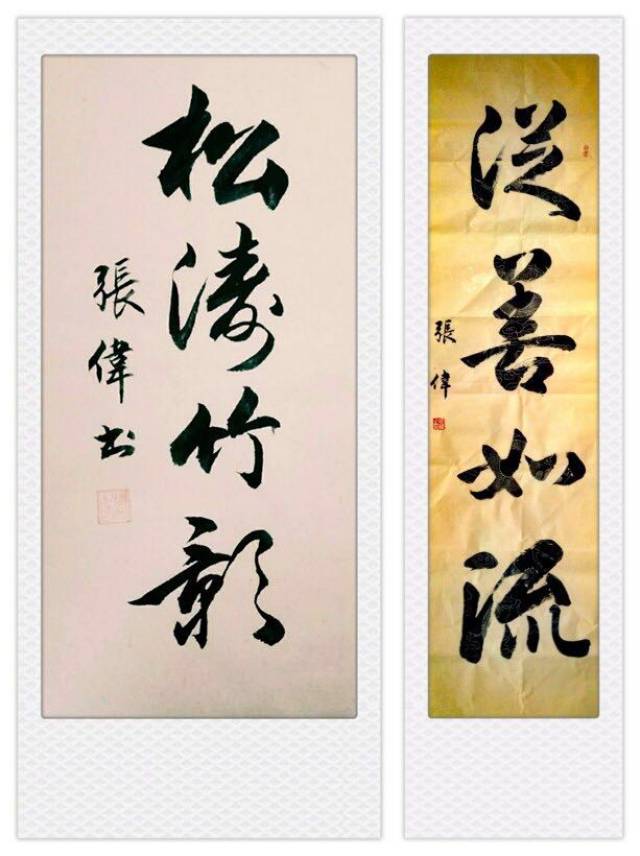 松濤竹影
張偉书
從善如流
張偉